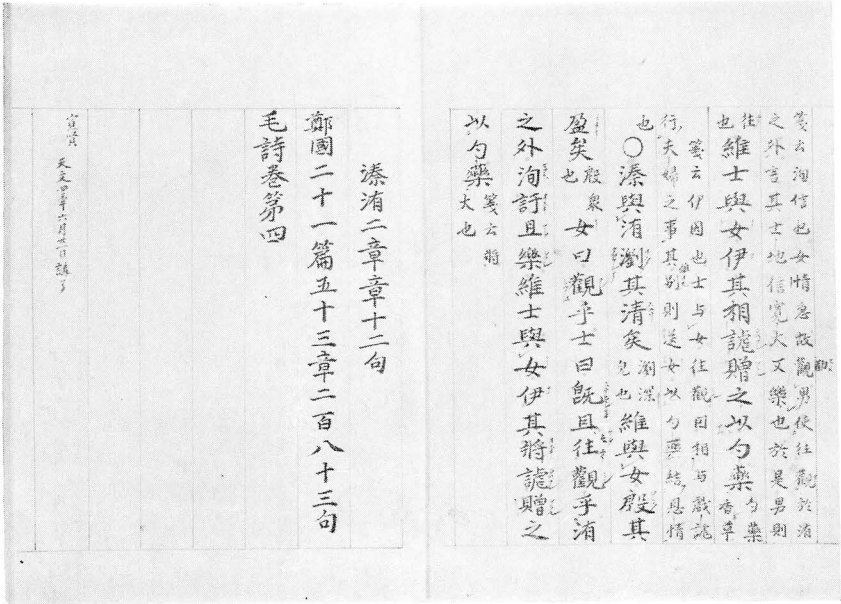 箋云洵信也女情急故觀男使往觀於洧
之外言其士地信寬大又樂也於是男則
往也維士與女伊其相謔贈之以勺藥勺藥香草
箋云伊因也士与女往觀因相与戲謔
行夫婦之事其別則送女以勺藥結恩情
也○溱與洧瀏其清矣瀏深皃也維與女殷其
盈矣殷衆也女曰觀乎士曰旣且往觀乎洧
之外洵訏且樂維士與女伊其將謔贈之
以勺藥箋云將大也
溱洧二章章十二句
鄭國二十一篇五十三章二百八十三句
毛詩卷第四
宣賢
天文四年六月廿一日講了